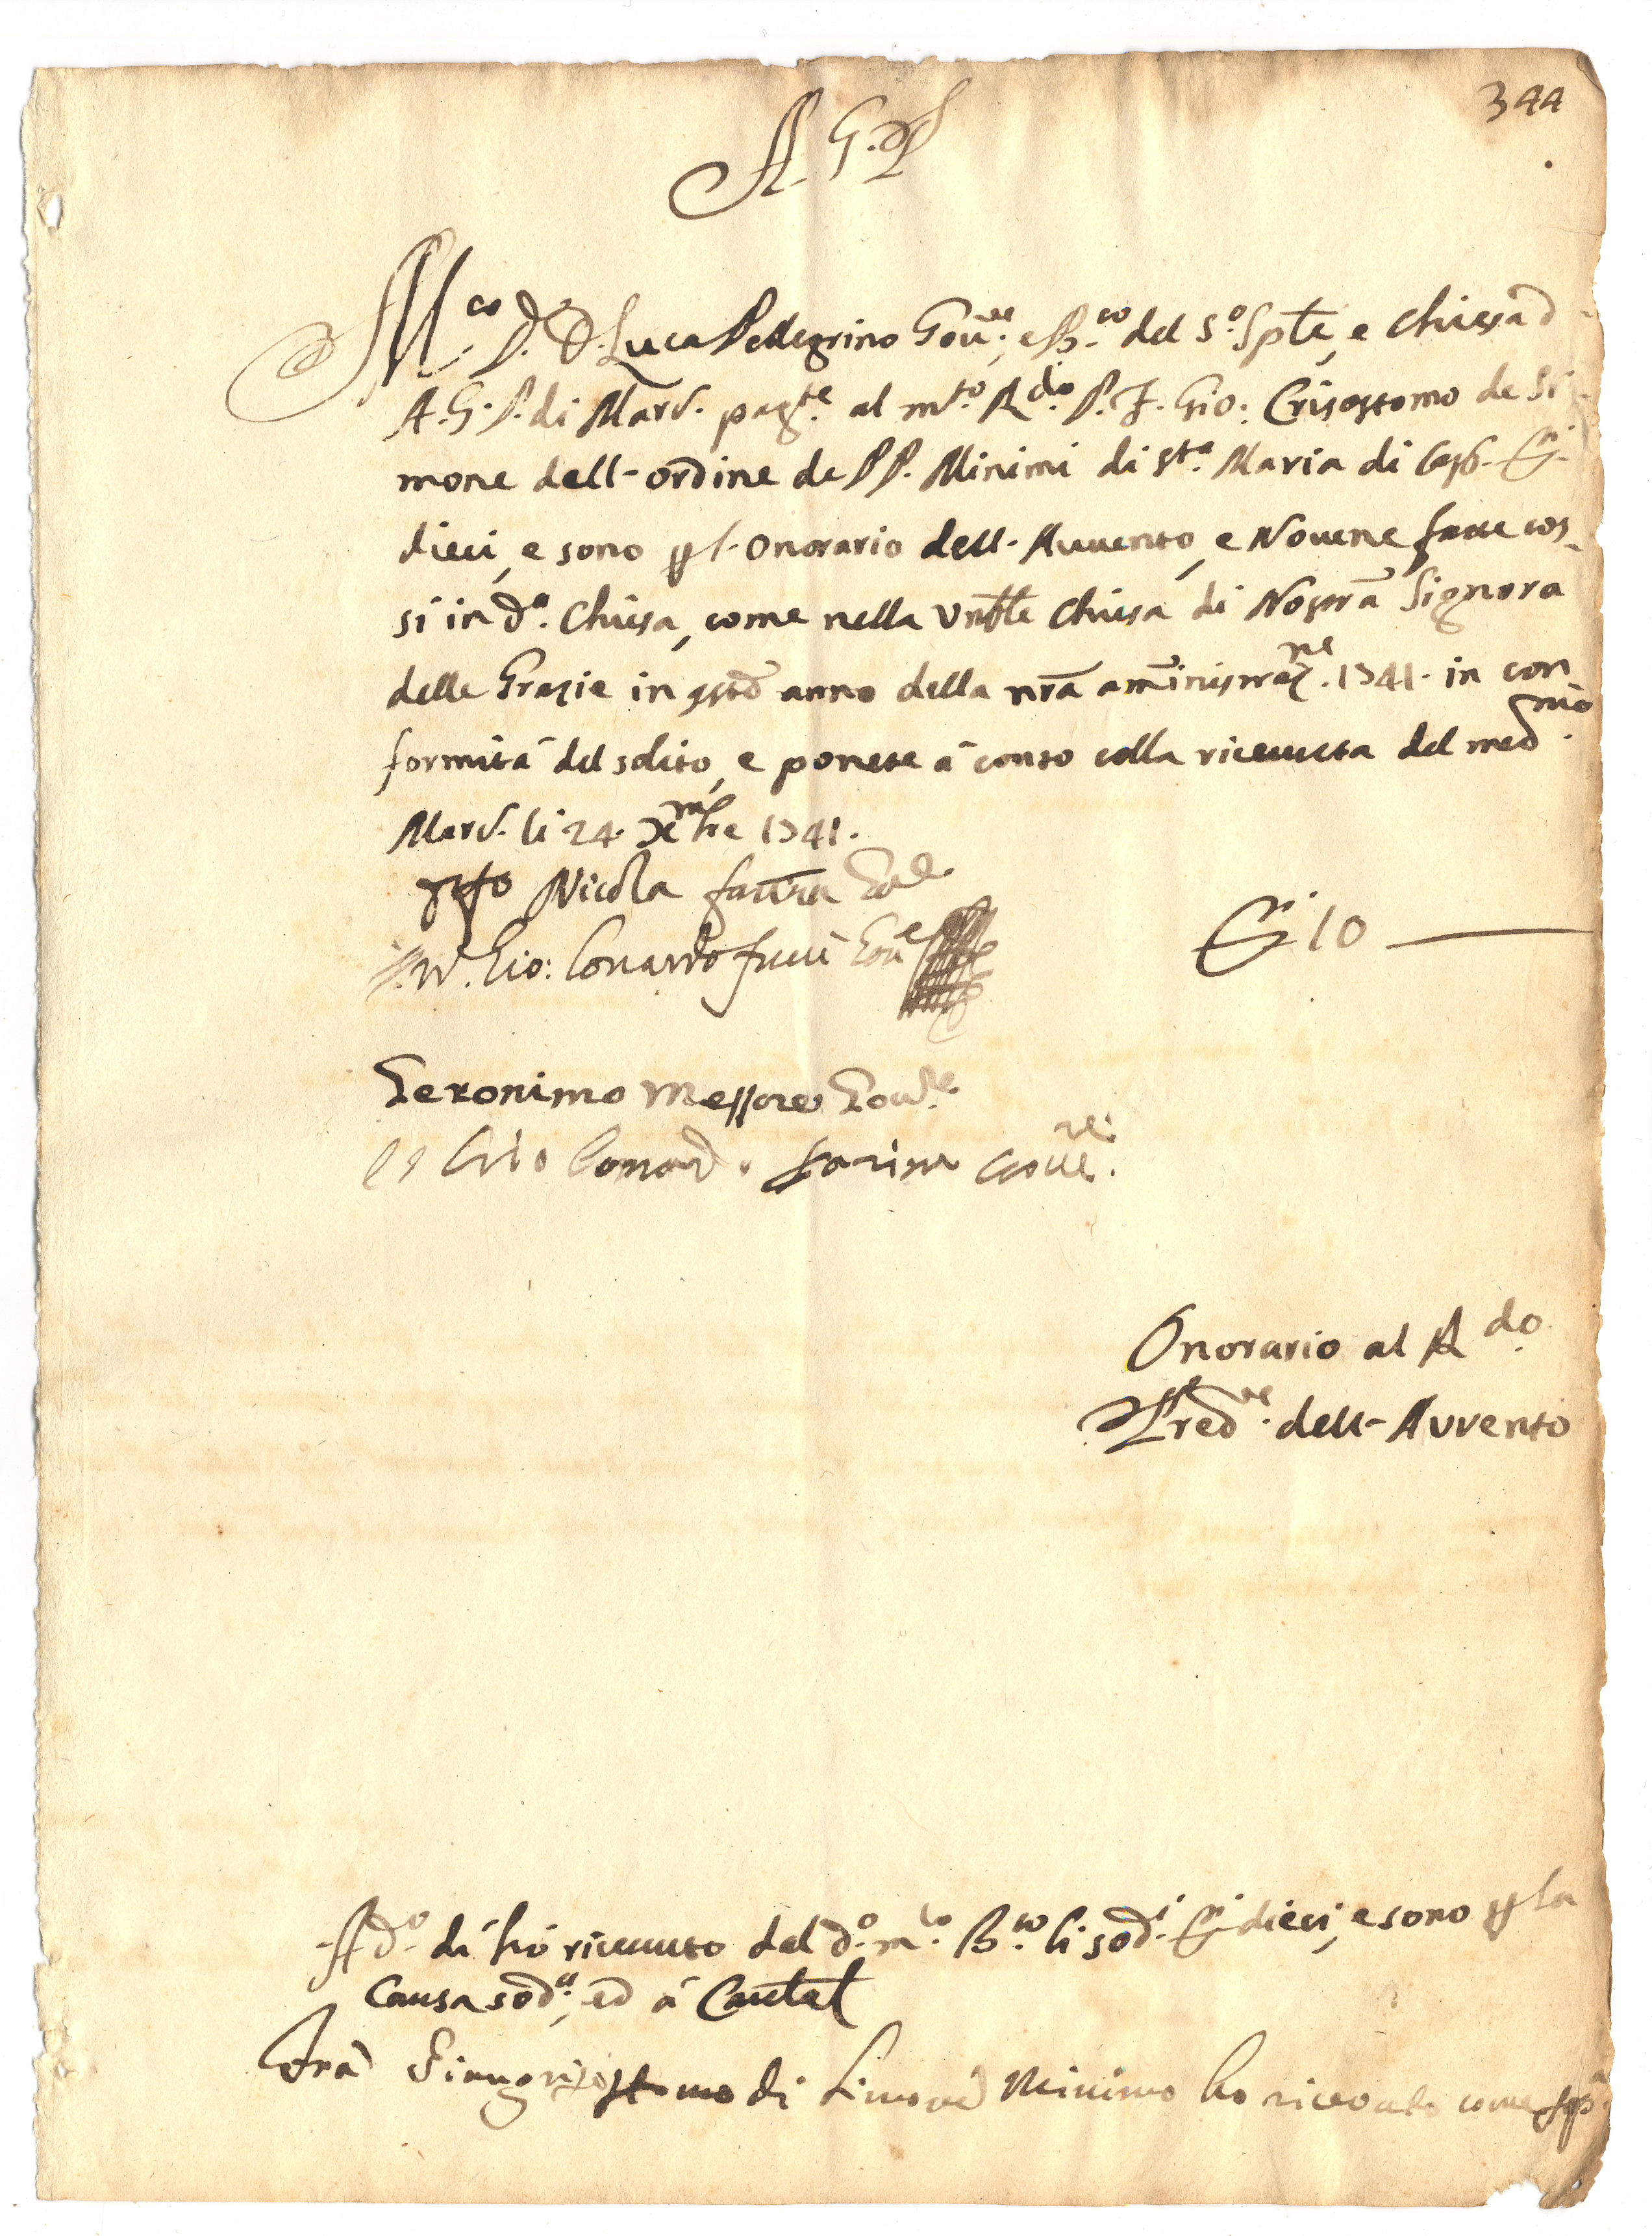 344
A. G. P.
M.co D.r D. Luca Pellegrino Gov.re, e B.co del S.o Spte, e Chiesa d
A. G. P. di Mard. pag.te al m.to R.do P. F. Gio: Crisostomo de Si-
mone dell-ordine de PP. Minimi di S.ta Maria di
dieci, e sono p l-Onorario dell-Auuento, e Nouene fatte cos-
si in d.a Chiesa, come nella Chiesa di Nostra Signora
delle Grazie in anno della nra aministraz.ne 1741. in con-
formità del solito, e ponete á conto colla riceuuta del med.mo
Mard. li 24. Xmbre 1741.
Nicola Gov.e
Gio: Gou.e
D.i 10
Geronimo Messore Gou.re
Gou.re
Onorario al R.do
Pred.re dell-Avvento
A d.o di hó riceuuto dal d.o m.co B.co li sod.i D.i dieci, e sono p la
Causa sod.a, ed á Cautel
Frà di Simone Minimo ho riceouto come sop.a